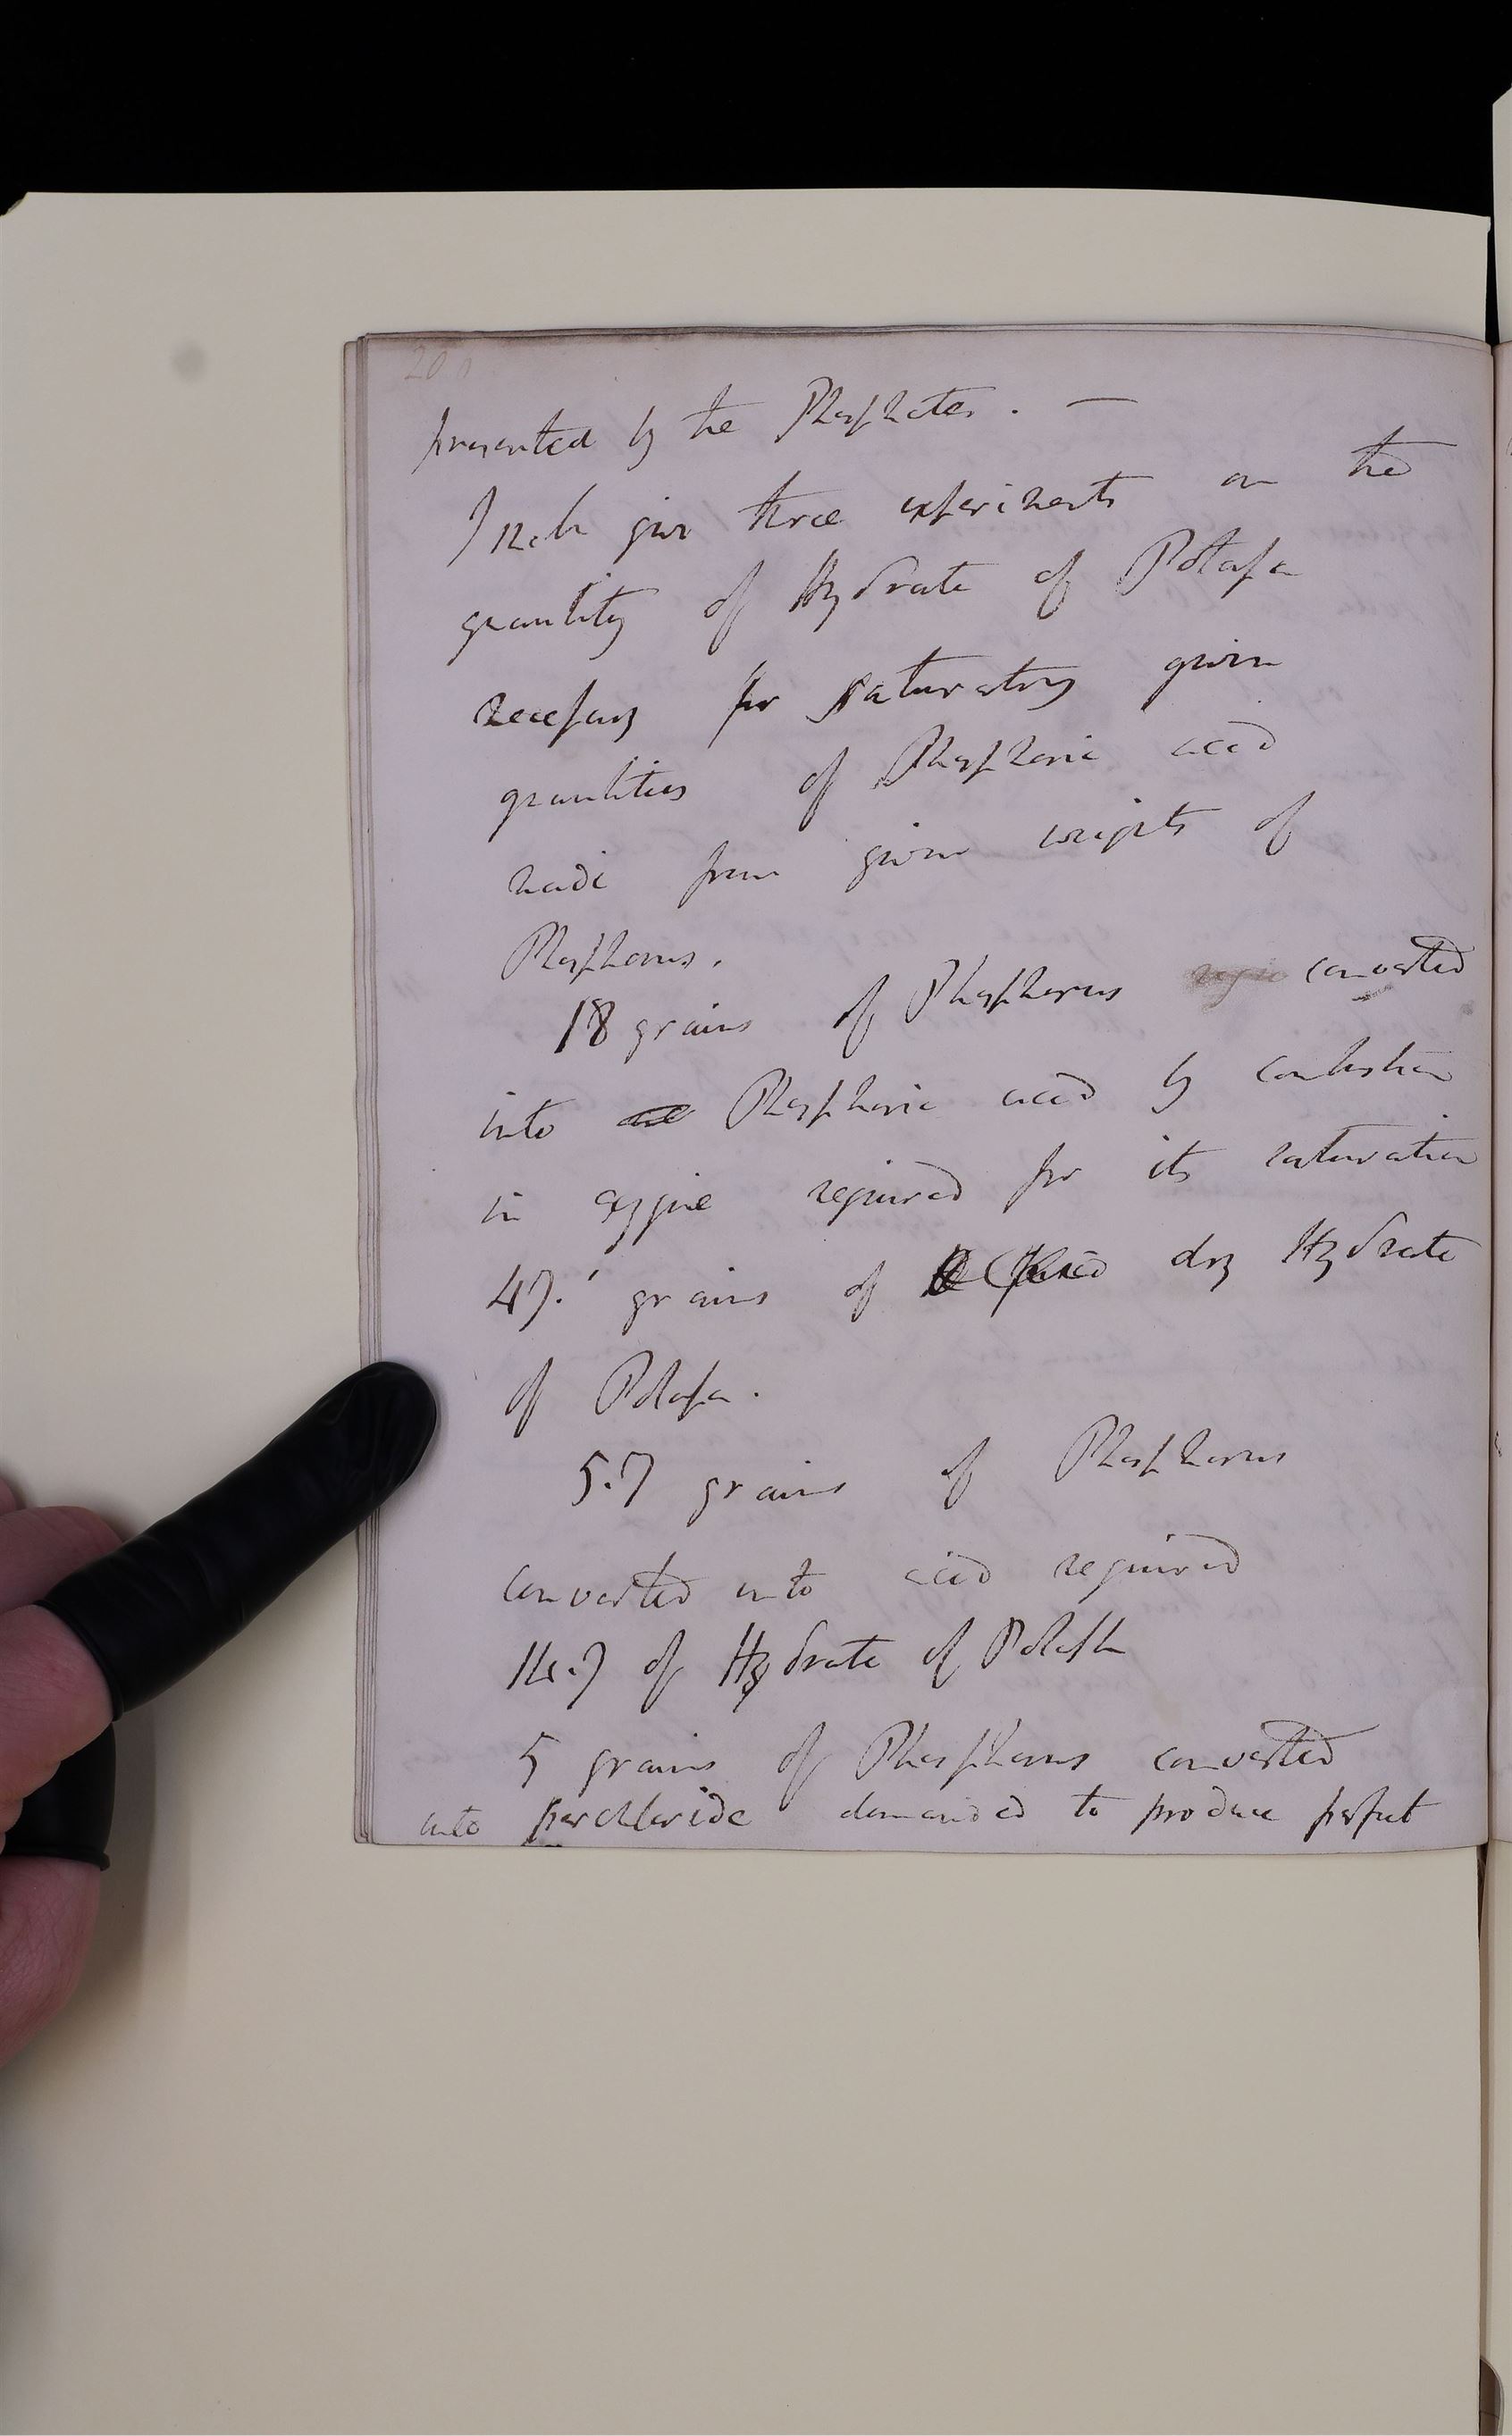 20
presented by the Phosphates. —
I shall give three experiments on the
quantity of Hydrate of Potassa
necessary for saturating given
quantities of Phosphoric acid
made from given weights of
Phosphorus.
18 grains of Phosphorus converted
into Phosphoric acid by combustion
in oxygene required for its saturation
47.1 grains of dry Hydrate
of Potassa.
5.7 grains of Phosphorus
converted into acid required
14.7 of Hydrate of Potash
5 grains of Phosphorus converted
into perchloride demanded to produce perfect